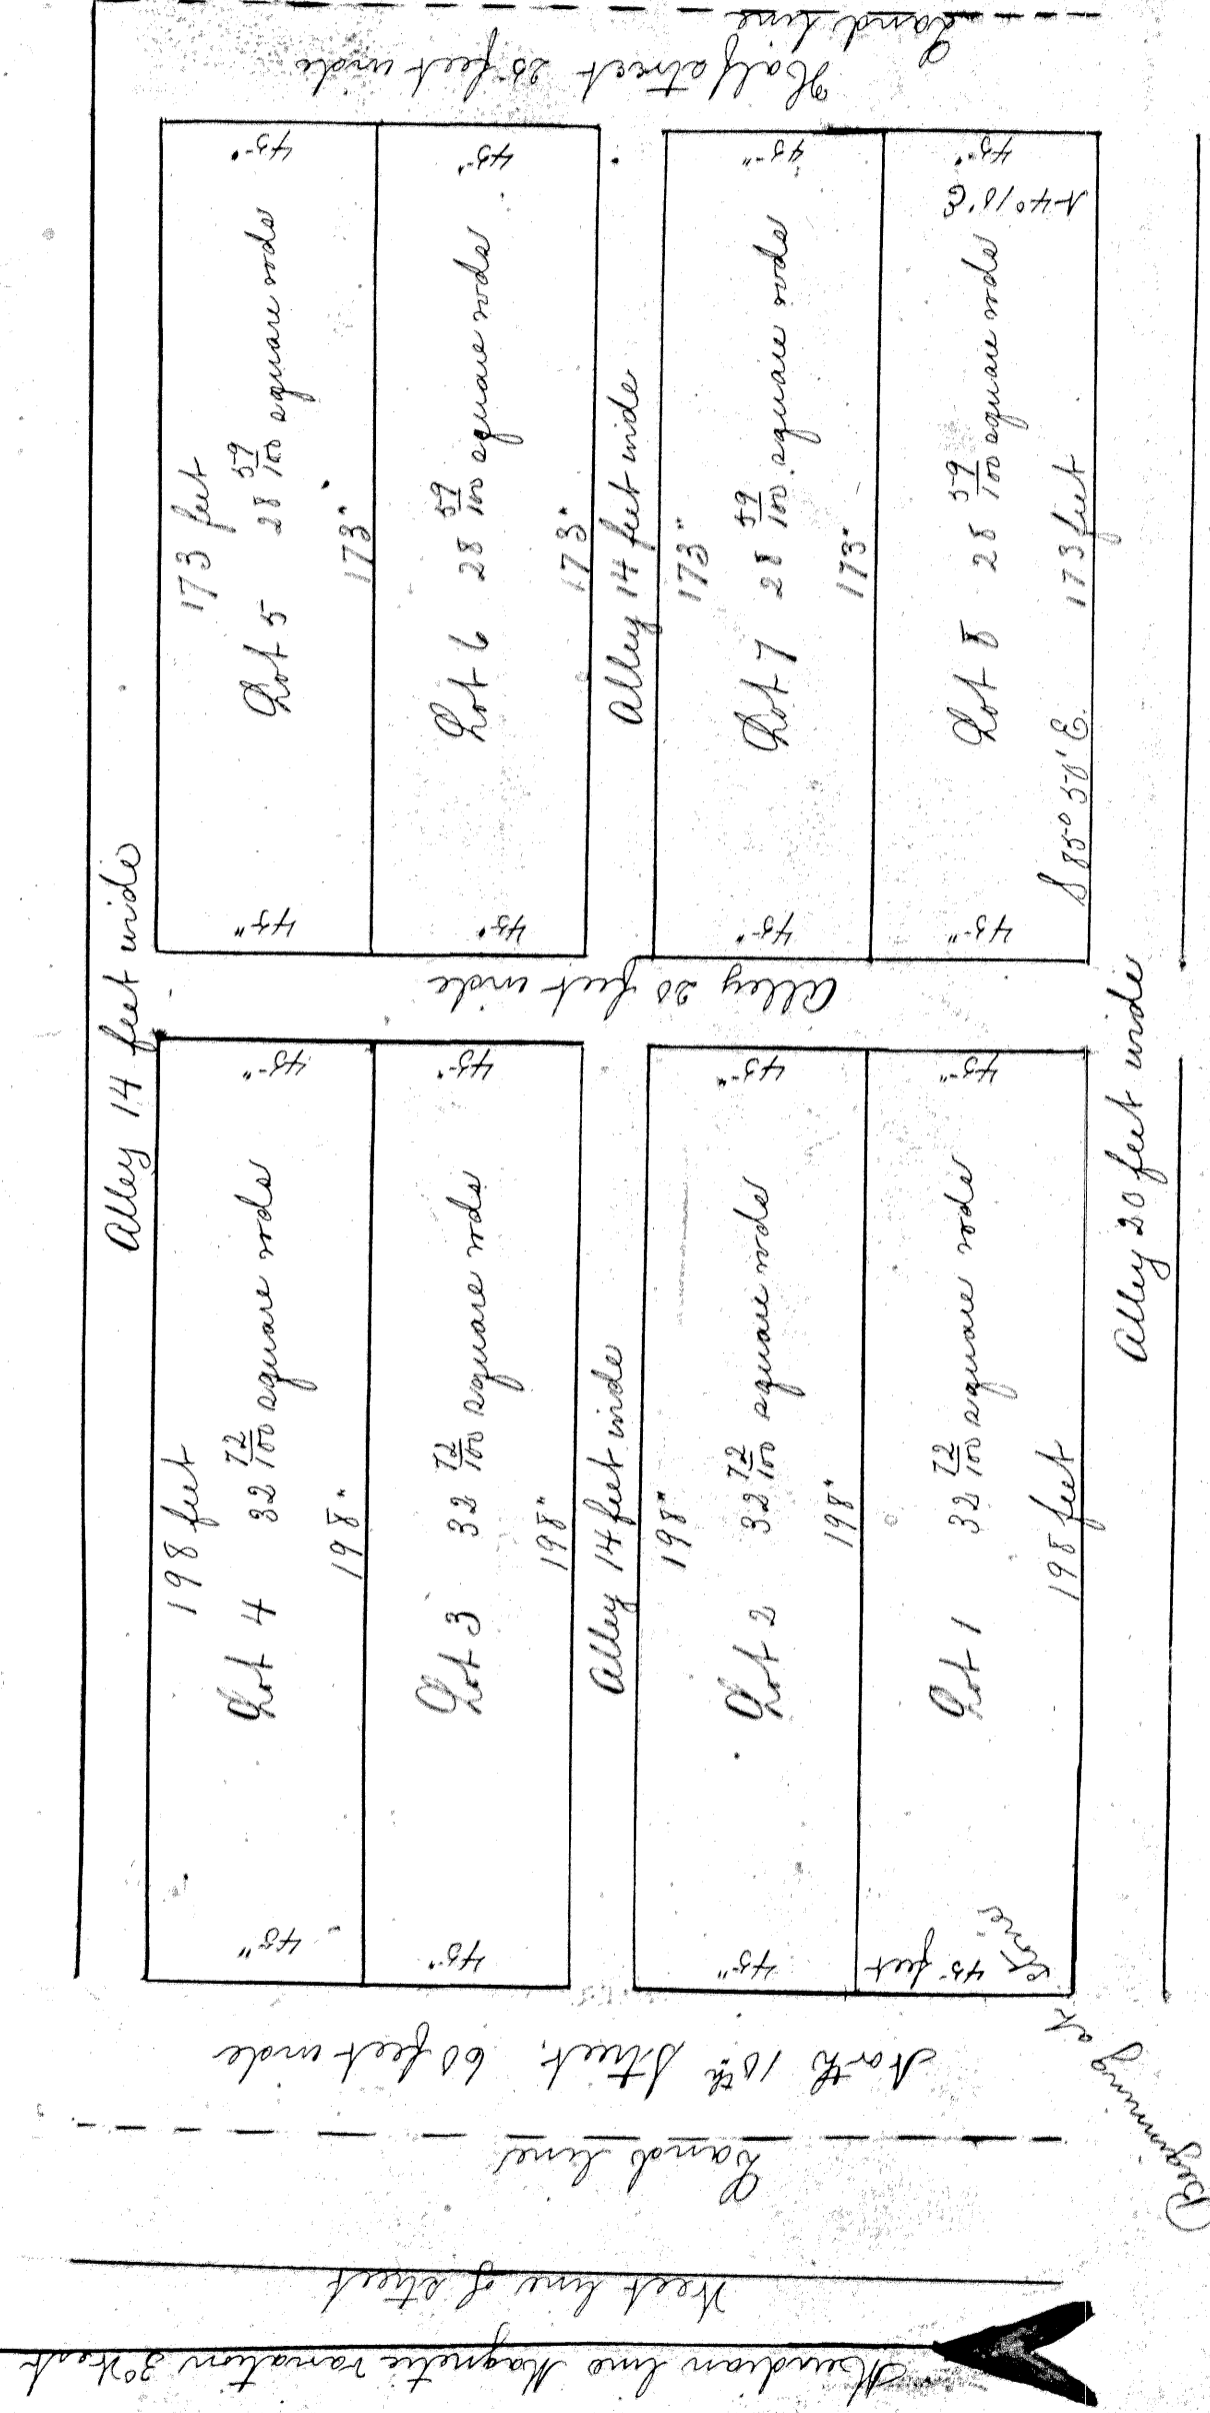 Land line
Half street 25 feet wide
45"
45"
45"
45"
N 4° 10' E
173 feet
Lot 5 28 59/100 square rods
173"
Lot 6 28 59/100 square rods
173"
Alley 14 feet wide
173"
Lot 7 28 59/100 square rods
173"
Lot 8 28 59/100 square rods
S 85° 50' E. 173 feet
45"
45"
45"
45"
Alley 14 feet wide
Alley 20 feet wide
Alley 20 feet wide
45"
45"
45"
45"
198 feet
Lot 4 32 72/100 square rods
198"
Lot 3 32 72/100 square rods
198"
Alley 14 feet wide
198"
Lot 2 32 72/100 square rods
198"
Lot 1 32 72/100 square rods
198 feet
45"
45"
45"
45 feet
Beginning at Stone
North 10th Street, 60 feet wide
Land line
West line of street
Meridian line Magnetic Variation 3° West